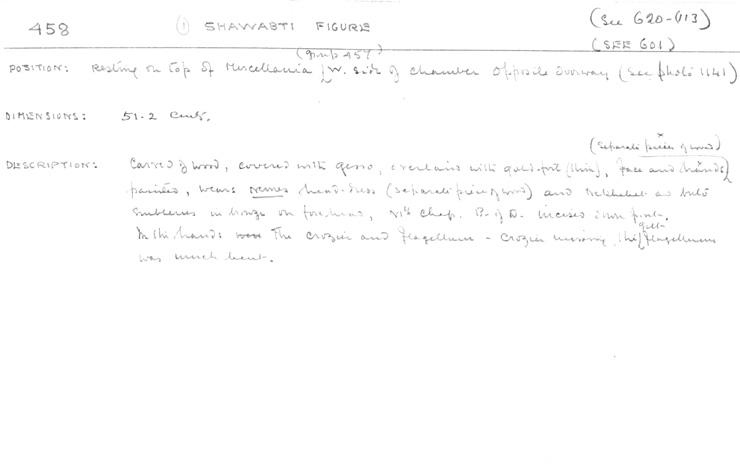 458 ① SHAWABTI FIGURE (See 620-113)
(SEE 601)
(group 457)
POSITION: Resting on top of Miscellania W. side of chamber opposite doorway (See photo 1141)
DIMENSIONS: 51.2 Cents.
(separate pieces of wood)
DESCRIPTION: Carved of wood, covered with gesso, overlaid with gold-foil (thin), face and hands
painted, wears Nemes head-dress (separate piece of wood) and Nekhebet and Buto
emblems in bronze on forehead, VIth Chap. B. of D. incised down front.
In the hands the crozier and flagellum - crozier missing, the gilt flagellum
was much bent.